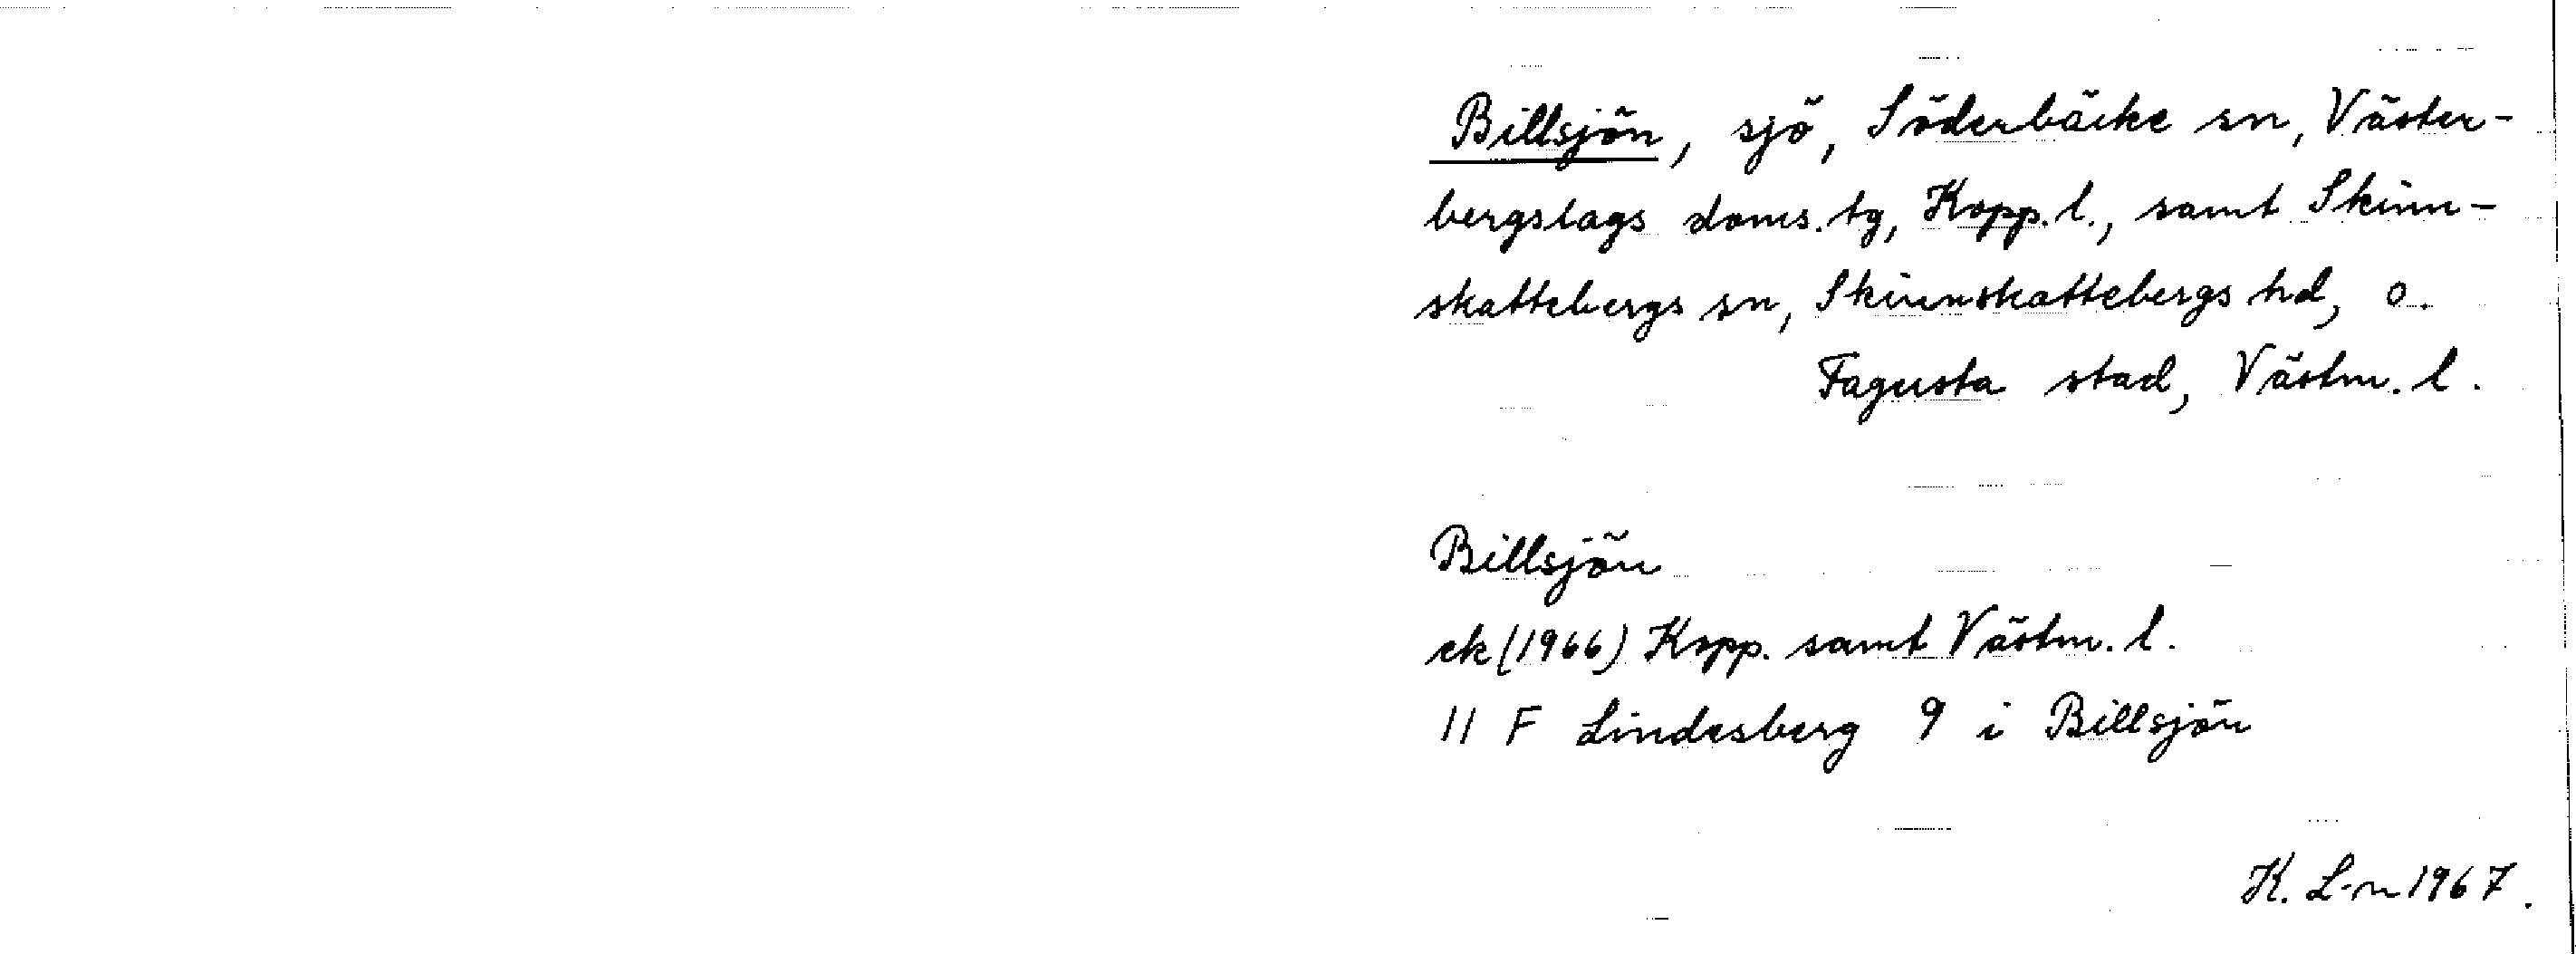 Billsjön, sjö, Söderbärke sn, Väster-
bergslags doms. tg, Kopp. l., samt Skinn-
skattebergs sn, Skinnskattebergs hd, o.
Fagersta stad, Västm. l.
Billsjön
ek (1966) Kopp. samt Västm. l.
11 F Lindesberg 9 i Billsjön
K. L-n 1967.